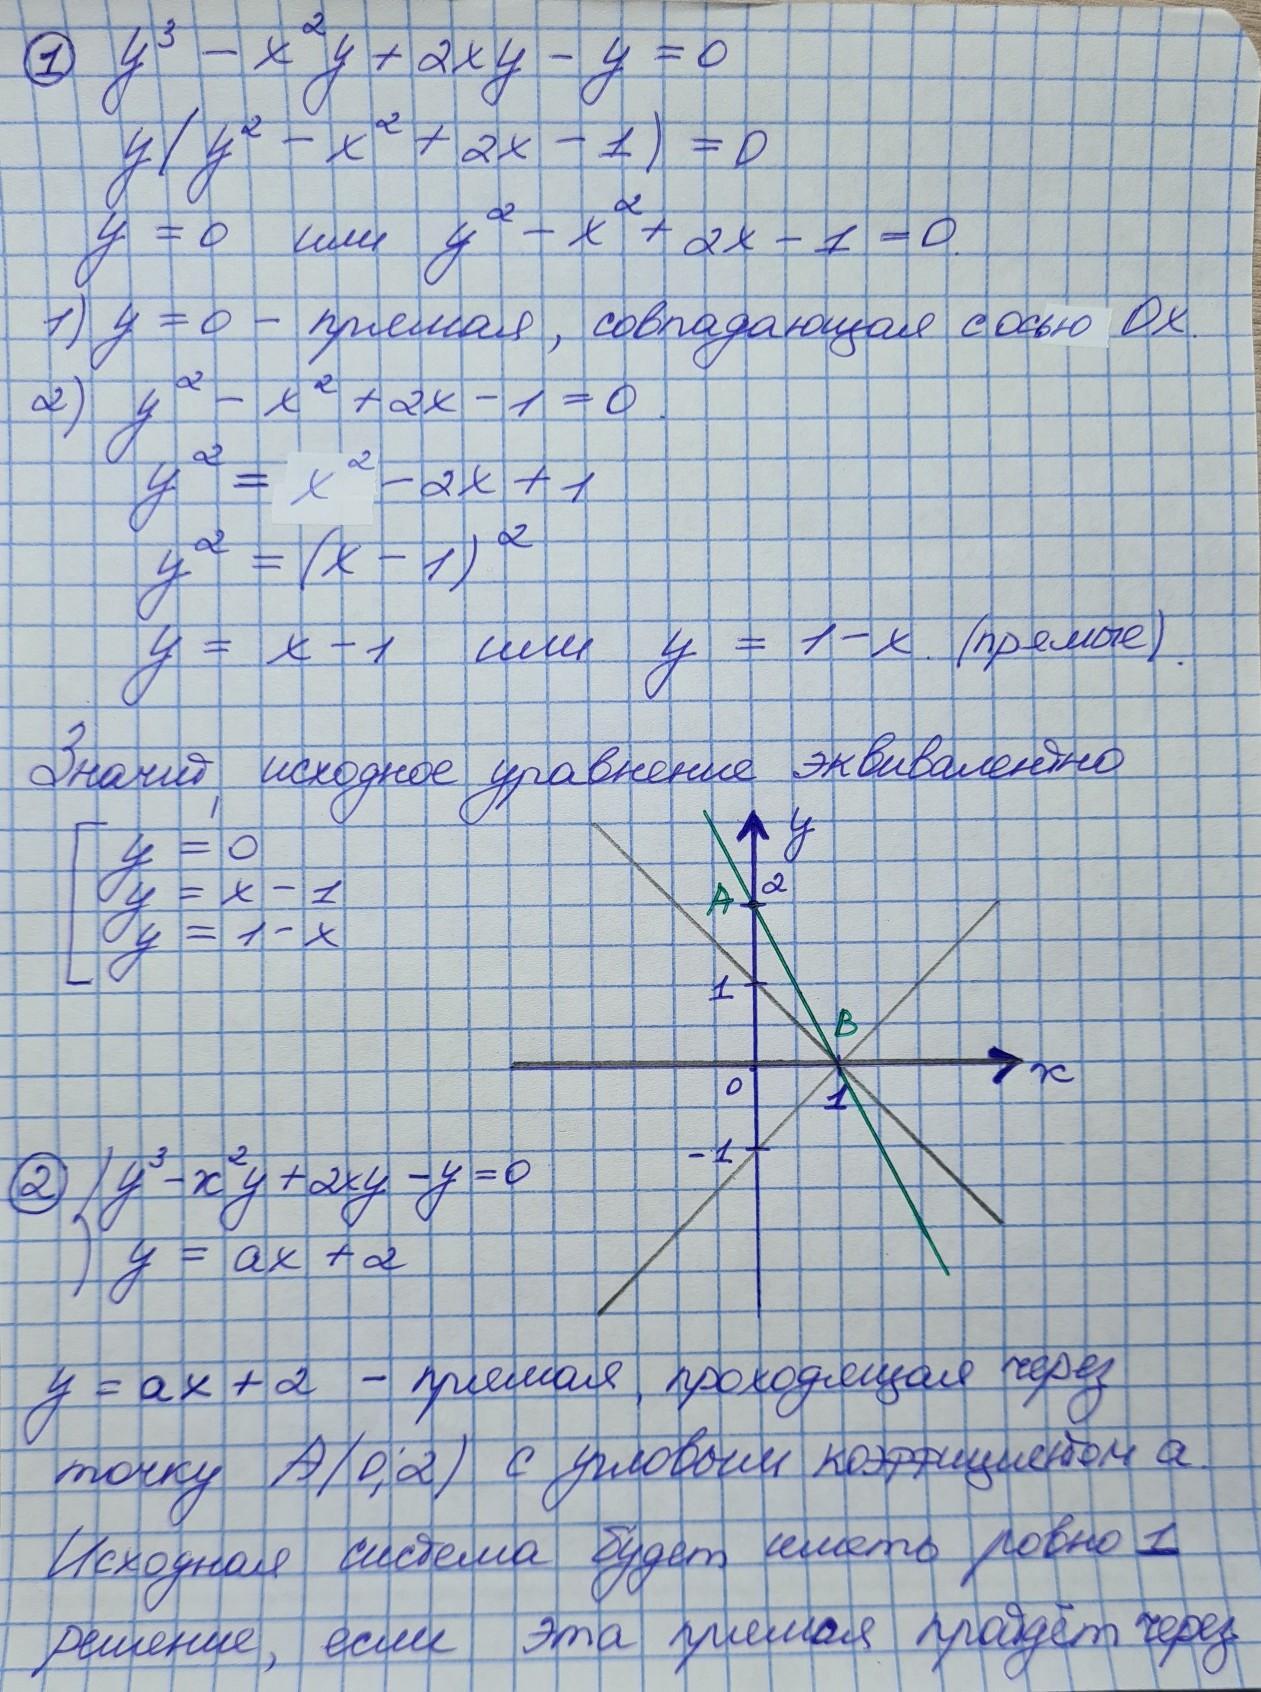 ① y³ - x²y + 2xy - y = 0
y(y² - x² + 2x - 1) = 0
y = 0 или y² - x² + 2x - 1 = 0.
1) y = 0 - прямая, совпадающая с осью Ox.
2) y² - x² + 2x - 1 = 0.
y² = x² - 2x + 1
y² = (x - 1)²
y = x - 1 или y = 1 - x. (прямые).
Значит, исходное уравнение эквивалентно
[ y = 0
y = x - 1
y = 1 - x
y
A 2
1
B
0 1 x
-1
② { y³ - x²y + 2xy - y = 0
y = ax + 2
y = ax + 2 - прямая, проходящая через
точку A(0;2) с угловым коэффициентом a.
Исходная система будет иметь ровно 1
решение, если эта прямая пройдёт через